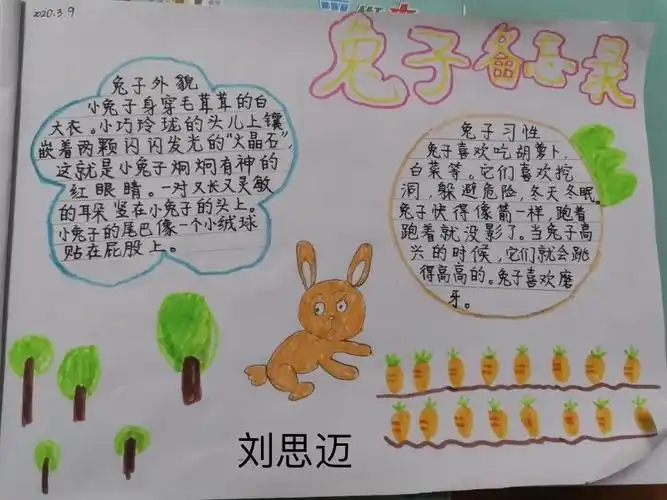 2020.3.9
兔子备忘录
兔子外貌
小兔子身穿毛茸茸的白
大衣。小巧玲珑的头儿上镶
嵌着两颗闪闪发光的“火晶石”,
这就是小兔子炯炯有神的
红眼睛。一对又长又灵敏
的耳朵竖在小兔子的头上。
小兔子的尾巴像一个小绒球
贴在屁股上。
兔子习性
兔子喜欢吃胡萝卜、
白菜等。它们喜欢挖
洞,躲避危险,冬天冬眠。
兔子快得像箭一样,跑着
跑着就没影了。当兔子高
兴的时候,它们就会跳
得高高的。兔子喜欢磨
牙。
刘思迈